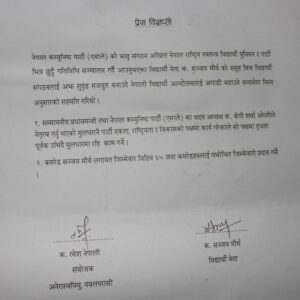 प्रेस विज्ञप्ती
नेपाल कम्युनिष्ट पार्टी (एमाले) को भातृ संगठन अखिल नेपाल राष्ट्रिय स्वतन्त्र विद्यार्थी युनियन र पार्टी
भित्र छुट्टै गतिविधि सञ्चालन गर्दै आउनुभएका विद्यार्थी नेता क. सञ्जय मौर्य को समूह बिच विद्यार्थी
संगठनलाई अझ सुदृढ मजबुत बनाउदै नेपाली विद्यार्थी आन्दोलनलाई अगाडी बढाउने सन्दर्भमा निम्न
अनुसारको सहमति गरियो ।
१. सम्माननीय प्रधानमन्त्री तथा नेपाल कम्युनिष्ट पार्टी (एमाले) का अध्यक्ष क. केपी शर्मा ओलीले
नेतृत्व गर्नु भएको मुलधारमै पार्टी एकता, राष्ट्रियता र विकासको पक्षमा कार्य गरेकाले सो पक्षमा दृढता
पूर्वक उभिदै मुलधारमा रहि काम गर्ने ।
२. कमरेड सञ्जय मौर्य लगायत जिम्मेवार विहिन ६५ जना कमरेडहरुलाई यथोचित जिम्मेवारी प्रदान गर्ने
।
क. रमेश नेपाली
संयोजक
अनेरास्ववियु, नवलपरासी
क. सञ्जय मौर्य
विद्यार्थी नेता